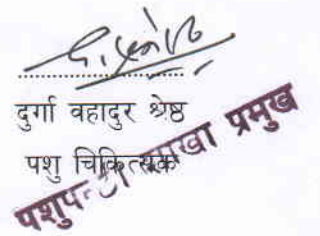 दुर्गा वहादुर श्रेष्ठ
पशु चिकित्सक
शाखा प्रमुख